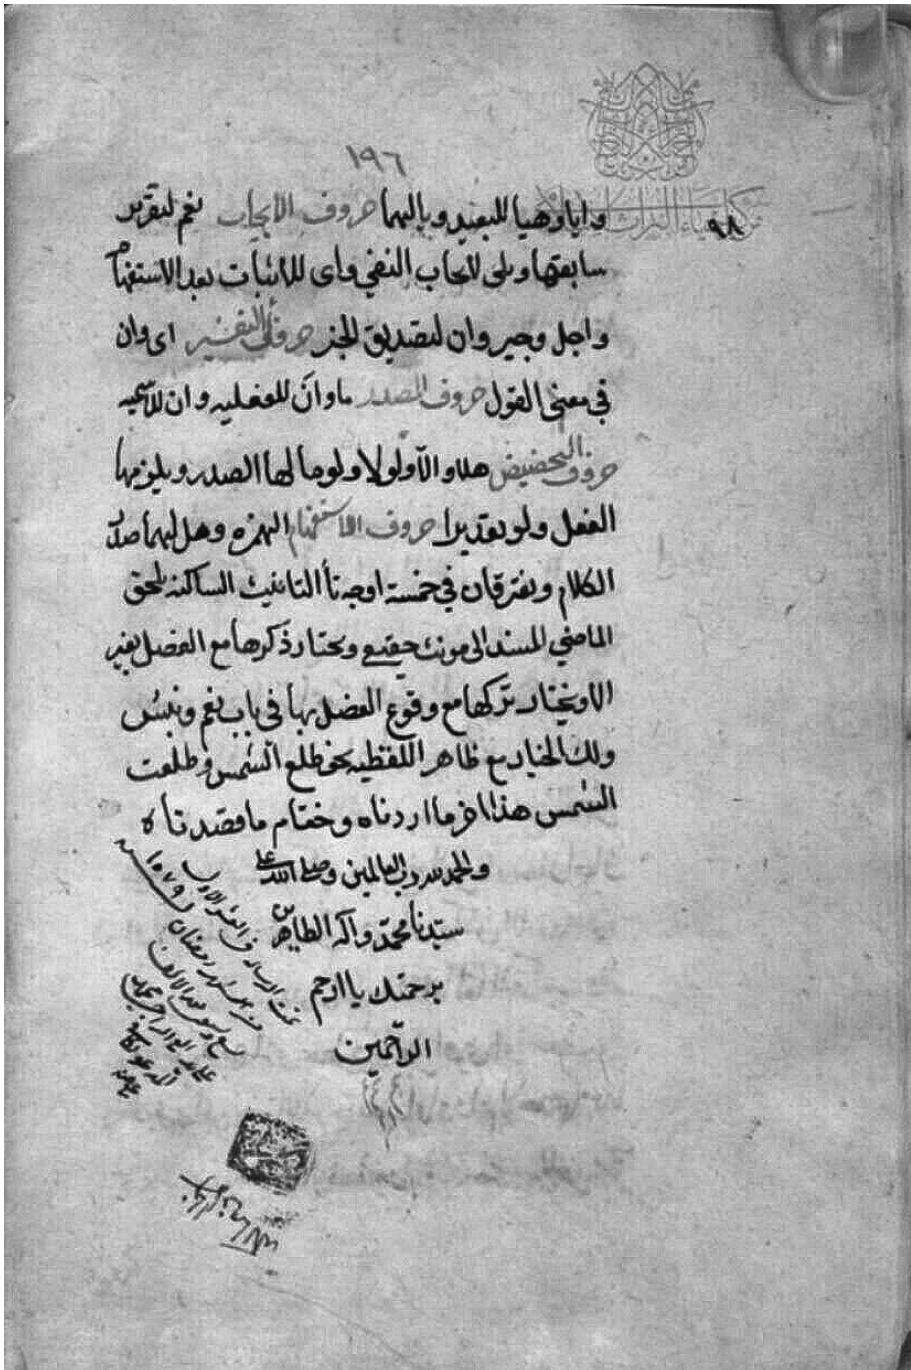 ١٩٦
٩٨
وايا وهيا للبعيد وباليهما حروف الايجاب نعم لتقرير
سابقها وبلى لايجاب النفي واى للاثبات بعد الاستفهام
واجل وجير وان لتصديق الخبر حرفا التفسير اى وان
في معنى القول حروف المصدر ما وان للفعليه وان للاسميه
حروف التحضيض هلا والا ولولا ولوما لها الصدر ويلزمها
الفعل ولو تقديرا حروف الاستفهام الهمزه وهل لهما صدر
الكلام ويفترقان في خمسة اوجه تأ التانيث الساكنه تلحق
الماضي المسند الى مونث حقيقي ويختار ذكرها مع الفصل بغير
الا ويختار تركها مع وقوع الفصل بها في باب نعم وبئس
ولك الخيار مع ظاهر اللفظيه نحو طلع الشمس وطلعت
الشمس هذا اخر ما اردناه وختام ما قصدناه
والحمد لله رب العالمين وصلى الله على
سيدنا محمد وآله الطاهرين
برحمتك يا ارحم
الراحمين
تمت الرسالة في العشر الاول
من شهر رمضان ١٠٧٩